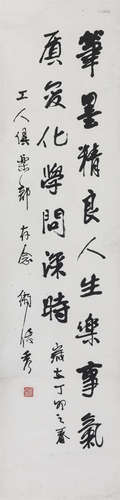 筆墨精良人生樂事氣
質變化學問深時 歲在丁卯之
工人俱樂部 存念 衛俊秀